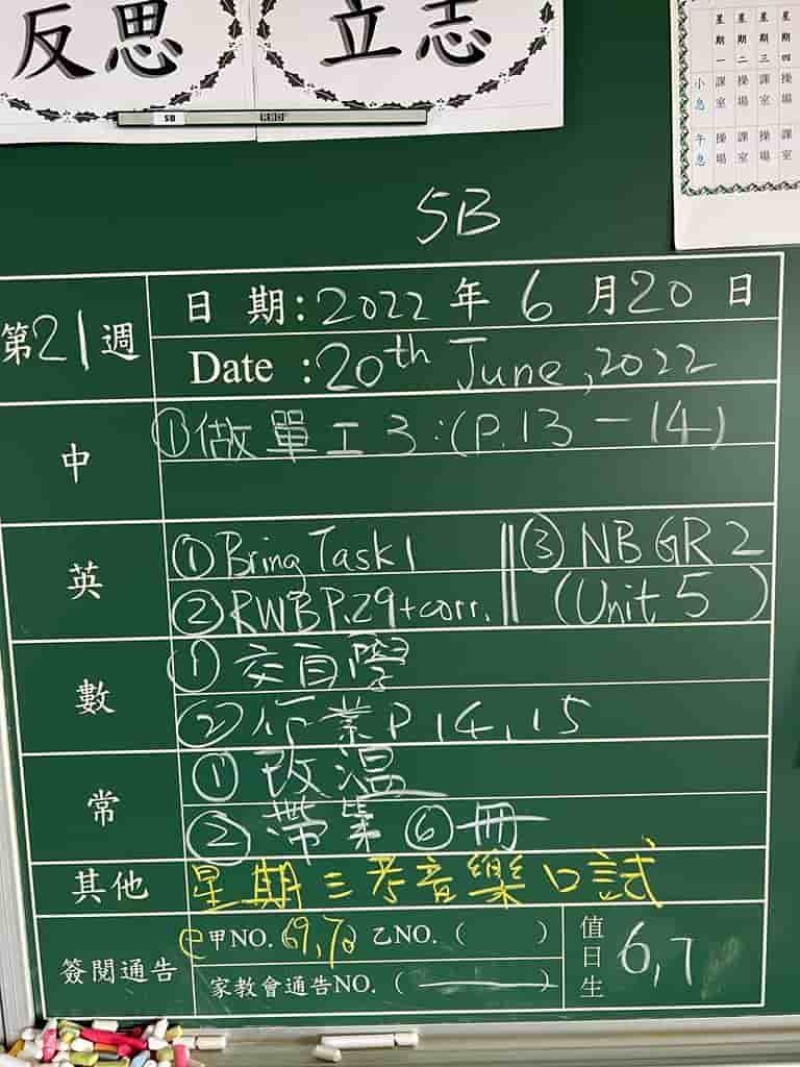 反思 立志
星期一 星期二 星期三 星期四
小息 課室 操場 課室 操場
午息 操場 課室 操場 課室
5B
第21週
日 期:2022 年 6 月 20 日
Date :20th June, 2022
中
①做單工3:(P.13-14)
英
①Bring Task 1
②RWB P.29+corr.
③NB GR 2
(Unit 5)
數
①交自學
②作業P14,15
常
①改温
②帶業⑥冊
其他
星期三考音樂口試
簽閱通告
e甲NO.(69,70) 乙NO.( )
家教會通告NO.( —
值日生 6,7